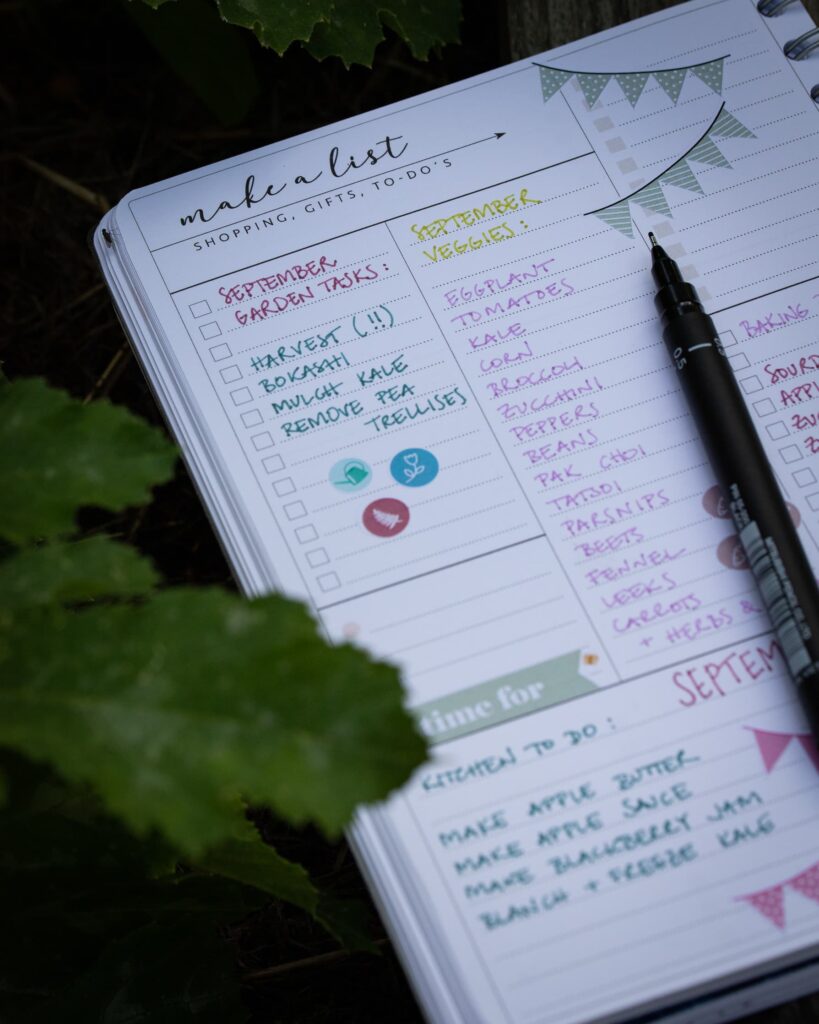 make a list
SHOPPING, GIFTS, TO-DO'S
SEPTEMBER
GARDEN TASKS:
HARVEST (!!)
BOKASHI
MULCH KALE
REMOVE PEA
TRELLISES
SEPTEMBER
VEGGIES:
EGGPLANT
TOMATOES
KALE
CORN
BROCCOLI
ZUCCHINI
PEPPERS
BEANS
PAK CHOI
TATSOI
PARSNIPS
BEETS
FENNEL
LEEKS
CARROTS
+ HERBS &
BAKING
SOURD
APPL
ZU
Z
0.5
time for
SEPTEM
KITCHEN TO DO:
MAKE APPLE BUTTER
MAKE APPLE SAUCE
MAKE BLACKBERRY JAM
BLANCH + FREEZE KALE